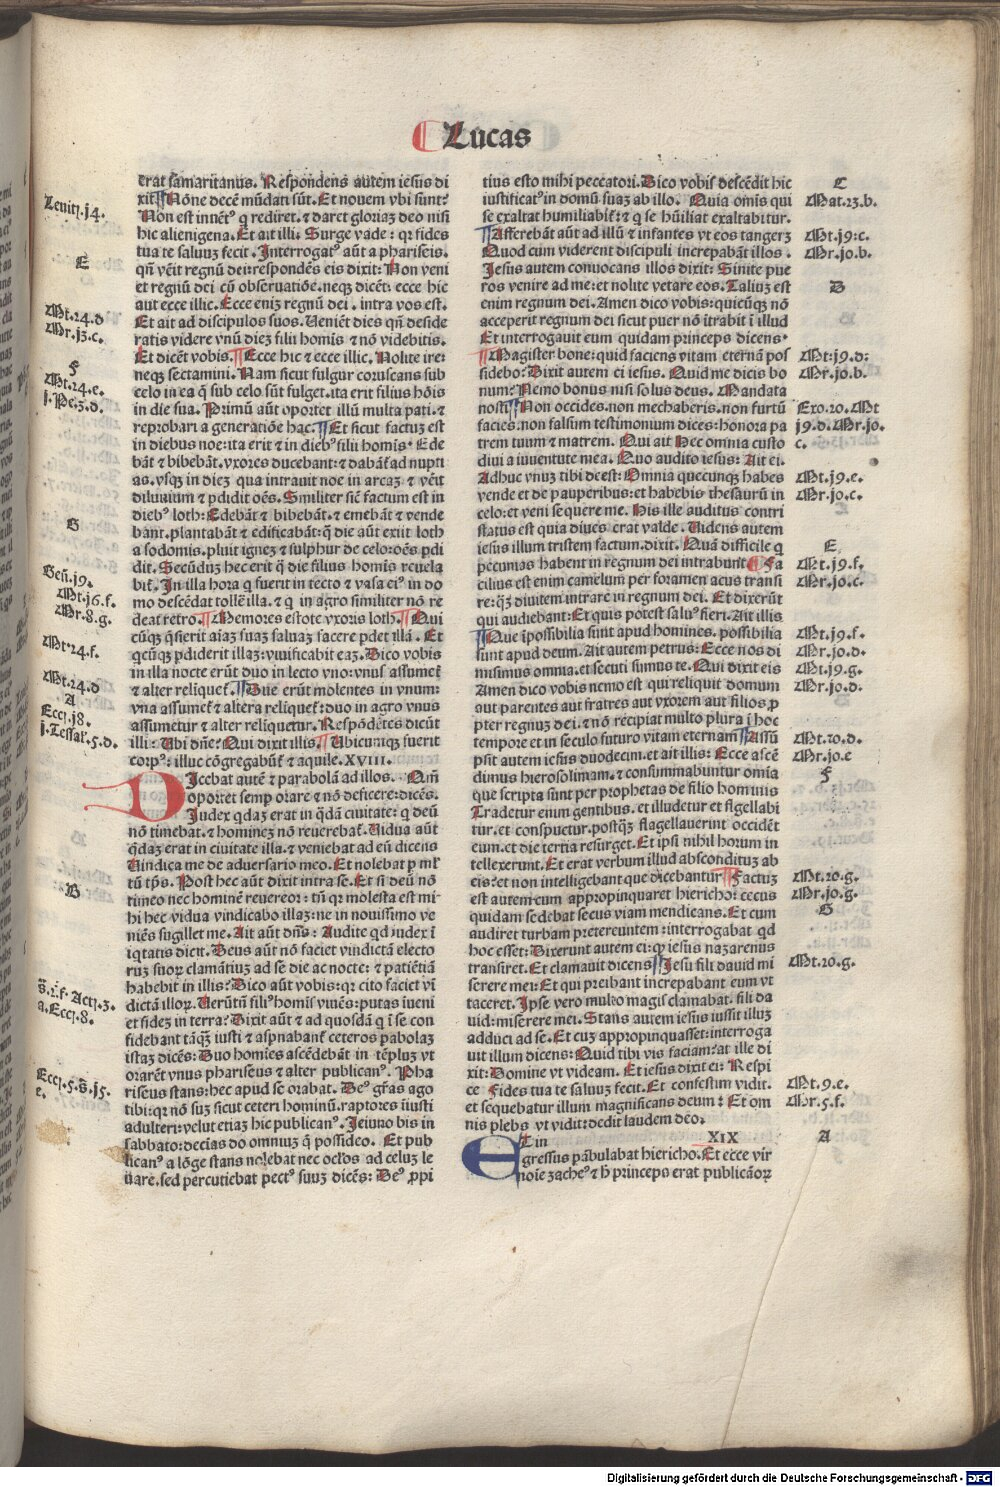 Lucas
erat samaritanus. Respondens autem iesus di
xit Nōne decē mūdati sūt. Et nouem vbi sunt?
Non est inuētꝰ q rediret. ⁊ daret gloriaꝫ deo nisi
hic alienigena. Et ait illi. Surge vade: qꝛ fides
tua te saluuꝫ fecit. Interrogatꝰ aūt a phariseis.
qn̄ vēit regnū dei: respondēs eis dixit: Non veni
et regnū dei cū obseruatiōe. neqꝫ dicēt: ecce hic
aut ecce illic. Ecce eniꝫ regnū dei. intra vos est.
Et ait ad discipulos suos. Ueniēt dies qn̄ deside
ratis videre vnū dieꝫ filii homis ⁊ nō videbitis.
Et dicēt vobis. Ecce hic ⁊ ecce illic. Nolite ire:
neqꝫ sectamini. Nam sicut fulgur coruscans sub
celo in ea q̄ sub celo sūt fulget. ita erit filius hōis
in die sua. Primū aūt oportet illū multa pati. ⁊
reprobari a generatiōe hac. Et sicut factuꝫ est
in diebus noe: ita erit ⁊ in diebꝰ filii homis. Ede
bāt ⁊ bibebāt. vxores ducebant: ⁊ dabāt̄ ad nupti
as. vsqꝫ in dieꝫ qua intrauit noe in arcaꝫ ⁊ vēit
diluuium ⁊ ꝑdidit oēs. Similiter siē factum est in
diebꝰ loth: Edebāt ⁊ bibebāt. ⁊ emebāt ⁊ vende
bant. plantabāt ⁊ edificabāt: q̄ die aūt exiit loth
a sodomis. pluit igneꝫ ⁊ sulphur de celo: oēs ꝑdi
dit. Secūduꝫ hec erit q̄ die filius homis reuela
bit̄. In illa hora q fuerit in tecto ⁊ vasa eiꝰ in do
mo descēdat tollē illa. ⁊ q in agro similiter nō re
deat retro. Memores estote vxoris loth. Qui
cūqꝫ q̄sierit aiaꝫ suaꝫ saluaꝫ facere ꝑdet illā. Et
qcūqꝫ ꝑdiderit illaꝫ: viuificabit eaꝫ. Dico vobis
in illa nocte erūt duo in lecto vno: vnus assumet̄
⁊ alter relīquet̄. Due erūt molentes in vnum:
vna assumet̄ ⁊ altera relīquet̄: duo in agro vnus
assumetur ⁊ alter relīquetur. Respōdētes dicūt
illi: Ubi dn̄e? Qui dixit illis. Ubicunqꝫ fuerit
corpꝰ: illuc cōgregabūt̄ ⁊ aquile. XVIII.
Dicebat autē ⁊ parabolā ad illos. Qm̄
oportet semꝑ orare ⁊ nō deficere: dicēs.
Iudex qdaꝫ erat in qdā ciuitate: q deū
nō timebat. ⁊ homineꝫ nō reuerebat̄. Uidua aūt
q̄daꝫ erat in ciuitate illa. ⁊ veniebat ad eū dicens
Uindica me de aduersario meo. Et nolebat ꝑ ml̄
tū tp̄s. Post hec aūt dixit intra se. Et si deū nō
timeo nec hominē reuereor: tn̄ qꝛ molesta est mi-
hi hec vidua vindicabo illaꝫ: ne in nouissimo ve
niēs sugillet me. Ait aūt dn̄s: Audite qd iudex i
iqtatis dicit. Deus aūt nō faciet vindictā electo
ruꝫ suoꝝ clamātiuꝫ ad se die ac nocte: ⁊ patiētiā
habebit in illis? Dico aūt vobis: qꝛ cito faciet vī
dictā illoꝝ. Uerūtn̄ filiꝰ homis viuēs: putas iueni
et fideꝫ in terra? Dixit aūt ⁊ ad quosdā q i se con
fidebant tāqꝫ iusti ⁊ aspnabant̄ ceteros ꝑabolaꝫ
istaꝫ dicēs: Duo homies ascēdebāt in tēpluꝫ vt
orarēt vnus phariseus ⁊ alter publicanꝰ. Pha
riseus stans: hec apud se orabat. Deꝰ gr̄as ago
tibi: qꝛ nō suꝫ sicut ceteri hominū. raptores iiusti
adulteri: velut etiaꝫ hic publicanꝰ. Ieiuno bis in
sabbato: decias do omniuꝫ q̄ possideo. Et pub
licanꝰ a lōge stans nolebat nec oclos ad celuꝫ le
uare. sed percutiebat pectꝰ suuꝫ dicēs: Deꝰ ꝓpi
Leuitj.j4.
E
Mt.24.d
Mr.j3.c.
F
Mt.24.e.
j.Pe.3.d.
G
Gen̄.j9.
Mt.j6.f.
Mr.8.g.
Mt.24.f.
Mt.24.d
A
Eccj.j8.
j.Tessal.5.d.
B
Actj.3.
a.Eccj.8.
e.
tius esto mihi peccatori. Dico vobis descēdit hic
iustificatꝰ in domū suaꝫ ab illo. Quia omis qui
se exaltat humiliabit̄: ⁊ q se hūiliat exaltabitur.
Afferebāt aūt ad illū ⁊ infantes vt eos tangerꝫ
Quod cum viderent discipuli increpabāt illos.
Iesus autem conuocans illos dixit: Sinite pue
ros venire ad me: et nolite vetare eos. Taliuꝫ est
enim regnum dei. Amen dico vobis: quicūqꝫ nō
acceperit regnum dei sicut puer nō itrabit i illud
Et interrogauit eum quidam princeps dicens.
Magister bone: quid faciens vitam eternā pos
sidebo? Dixit autem ei iesus. Quid me dicis bo
num? Nemo bonus nisi solus deus. Mandata
nosti Non occides. non mechaberis. non furtū
facies. non falsum testimonium dices: honora pa
trem tuum ⁊ matrem. Qui ait Hec omnia custo
diui a iuuentute mea. Quo audito iesus: Ait ei.
Adhuc vnuꝫ tibi deest: Omnia quecunqꝫ habes
vende et da pauperibus: et habebis thesaurū in
celo: et veni sequere me. His ille auditus contri
status est quia diues erat valde. Uidens autem
iesus illum tristem factum. dixit. Quā difficile q
pecunias habent in regnum dei intrabunt Fa
cilius est enim camelum per foramen acus transi
re: qꝫ diuitem intrare in regnum dei. Et dixerūt
qui audiebant: Et quis potest saluꝰ fieri. Ait illis
Que īpossibilia sunt apud homines. possibilia
sunt apud deum. Ait autem petrus: Ecce nos di
misimus omnia. et secuti sumus te. Qui dixit eis
Amen dico vobis nemo est qui reliquit domum
aut parentes aut fratres aut vxorem aut filios ꝓ
pter regnuꝫ dei. ⁊ nō recipiat multo plura i hoc
tempore et in seculo futuro vitam eternam Assū
psit autem iesus duodecim. et ait illis: Ecce ascē
dimus hierosolimam. ⁊ consummabuntur omia
que scripta sunt per prophetas de filio hominis
Tradetur enim gentibus. et illudetur et flagellabi
tur. et conspuetur. postqꝫ flagellauerint occidēt
eum. et die tertia resurget. Et ipsi nihil horum in
tellexerunt. Et erat verbum illud absconditum ab
eis: et non intelligebant que dicebantur Factuꝫ
est autem cum appropinquaret hiericho: cecus
quidam sedebat secus viam mendicans. Et cum
audiret turbam pretereuntem: interrogabat qd
hoc esset: Dixerunt autem ei: qp iesus nazarenus
transiret. Et clamauit dicens Iesu fili dauid mi
serere mei: Et qui preibant increpabant eum vt
taceret. Ipse vero multo magis clamabat. fili da
uid: miserere mei. Stans autem iesus iussit illuꝫ
adduci ad se. Et cuꝫ appropinquasset: interroga
uit illum dicens: Quid tibi vis faciam? at ille di
xit: Domine vt videam. Et iesus dixit ei: Respi
ce Fides tua te saluuꝫ fecit. Et confestim vidit.
et sequebatur illum magnificans deum: Et om
nis plebs vt vidit: dedit laudem deo.
Et in XIX
gressus pābulabat hiericho: Et ecce vir
noīe zacheꝰ ⁊ h̄ princeps erat publicāoꝝ
C
Mat.23.b.
Mt.j9:c.
Mr.jo.b.
D
Mt:j9.d:
Mr.jo.b.
Exo.20.Mt
j9.d.Mr.jo.
c.
Mt.j9.e.
Mr.jo.c.
E
Mt.j9.f.
Mr.jo.c.
Mt.j9.f.
Mr.jo.d.
Mt.j9.g.
Mr.jo.d.
Mt.20.d.
Mr.jo.e
F
Mt.20.g.
Mr.jo.g.
G
Mt.20.g.
Mt.9.e.
Mr.5.f.
A
Digitalisierung gefördert durch die Deutsche Forschungsgemeinschaft - DFG